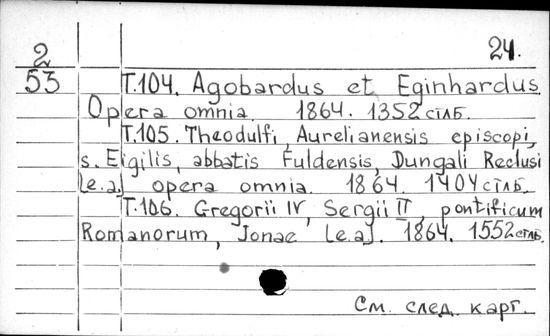 2
53
24.
T.104. Agobardus et Eginhardus.
Opera omnia. 1864. 1352 стлб.
T.105. Theodulfi, Aurelianensis episcopi,
s. Eigilis, abbatis Fuldensis, Dungali Reclusi
[e.a.] opera omnia. 1864. 1404 стлб.
T.106. Gregorii IV, Sergii II, pontificum
Romanorum, Jonae [e.a]. 1864. 1552 стлб.
См. след. карт.